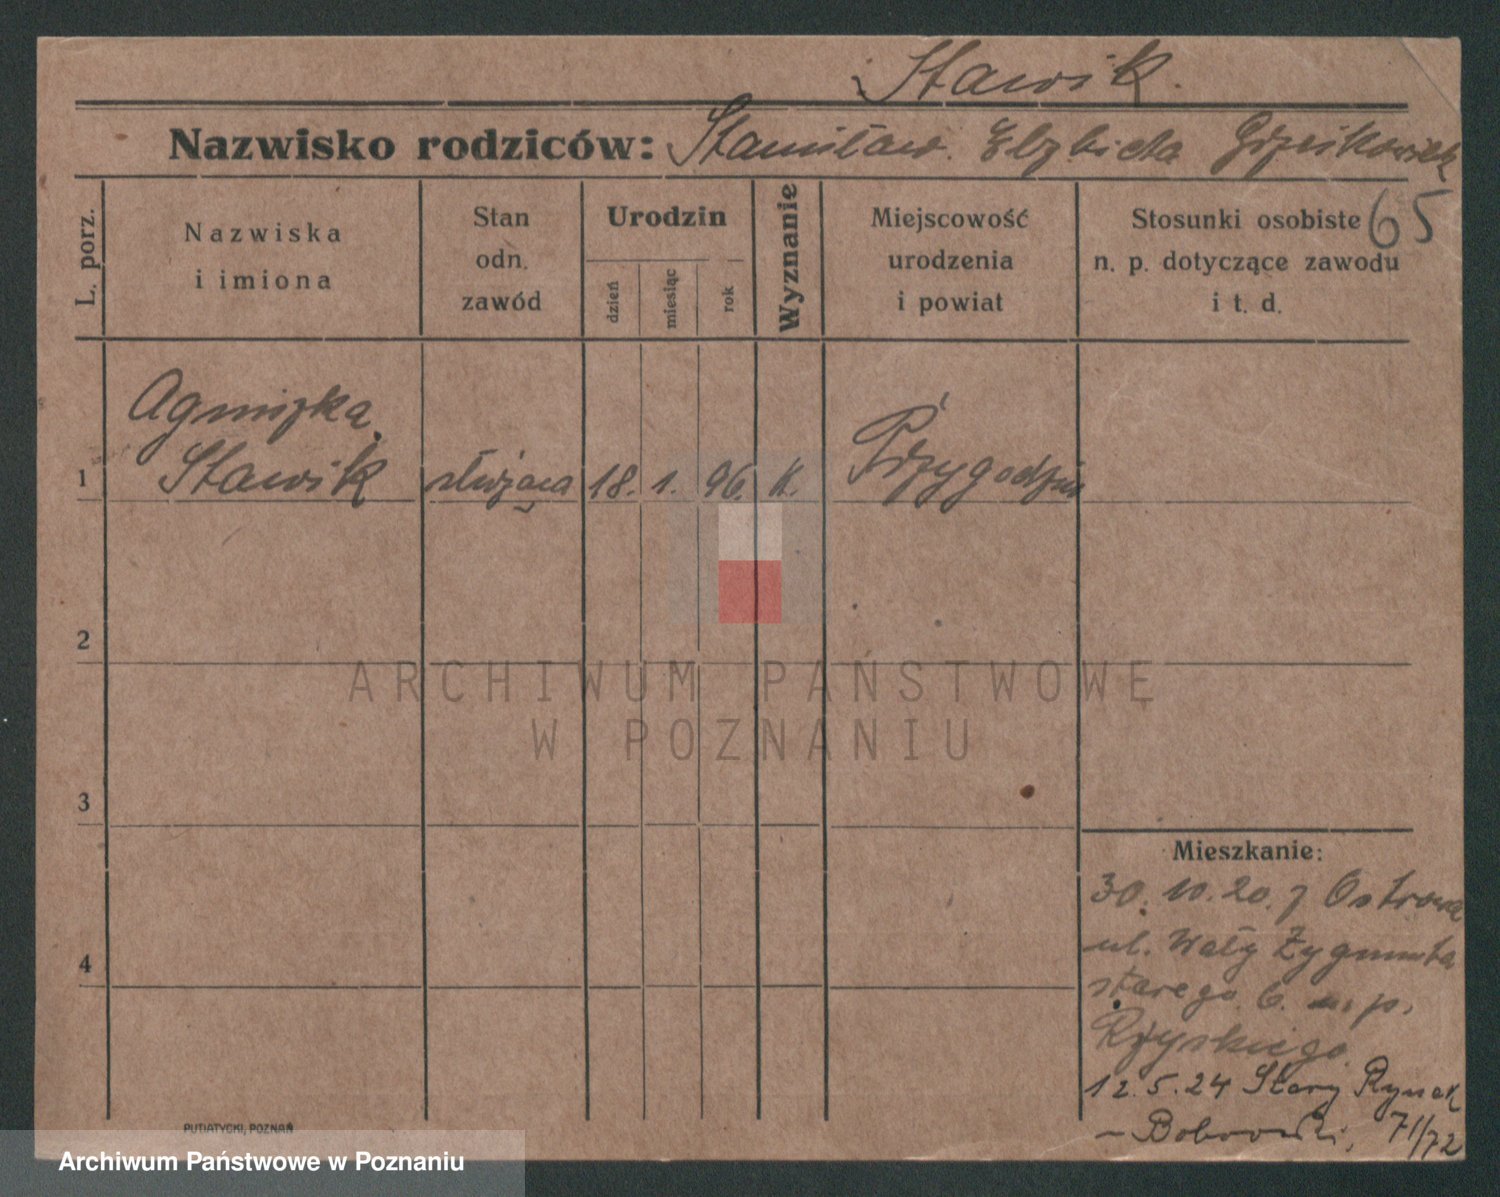 Stawik.
Nazwisko rodziców: Stanisław. Elzbieta
65
L. porz.
Nazwiska
i imiona
Stan
odn.
zawód
Urodzin
dzień
miesiąc
rok
Wyznanie
Miejscowość
urodzenia
i powiat
Stosunki osobiste
n. p. dotyczące zawodu
i t. d.
Agnizka
1 Stawik służąca 18. 1. 96. K. Przygodzice
2
3
4
Mieszkanie:
30. 10. 20. z Ostrowa
ul. Wały Zygmunta
starego 6. u. p.
12.5.24 Stary Rynek
71/72
PUTIATYCKI, POZNAŃ
ARCHIWUM PAŃSTWOWE
W POZNANIU
Archiwum Państwowe w Poznaniu